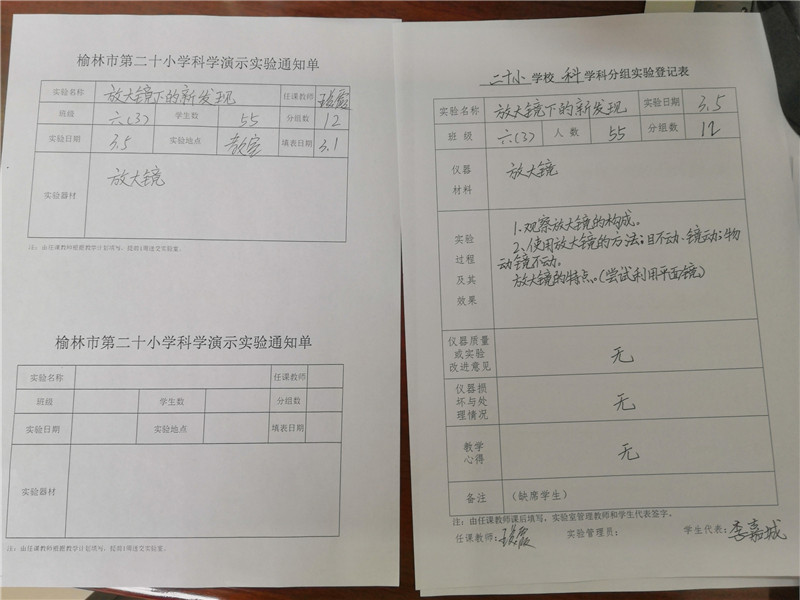 榆林市第二十小学科学演示实验通知单
实验名称 放大镜下的新发现 任课教师
班级 六(3) 学生数 55 分组数 12
实验日期 3.5 实验地点 教室 填表日期 3.1
实验器材 放大镜
注：由任课教师根据教学计划填写，提前1周送交实验室。
榆林市第二十小学科学演示实验通知单
实验名称 任课教师
班级 学生数 分组数
实验日期 实验地点 填表日期
实验器材
注：由任课教师根据教学计划填写，提前1周送交实验室。
二十小 学校 科 学科分组实验登记表
实验名称 放大镜下的新发现 实验日期 3.5
班 级 六(3) 人 数 55 分组数 12
仪器材料 放大镜
实验过程及其效果
1、观察放大镜的构成。
2、使用放大镜的方法；目不动、镜动；物
动镜不动。
放大镜的特点。(尝试利用平面镜)
仪器质量或实验改进意见 无
仪器损坏与处理情况 无
教学心得 无
备注 （缺席学生）
注：由任课教师课后填写，实验室管理教师和学生代表签字。
任课教师： 实验管理员： 学生代表：李嘉城